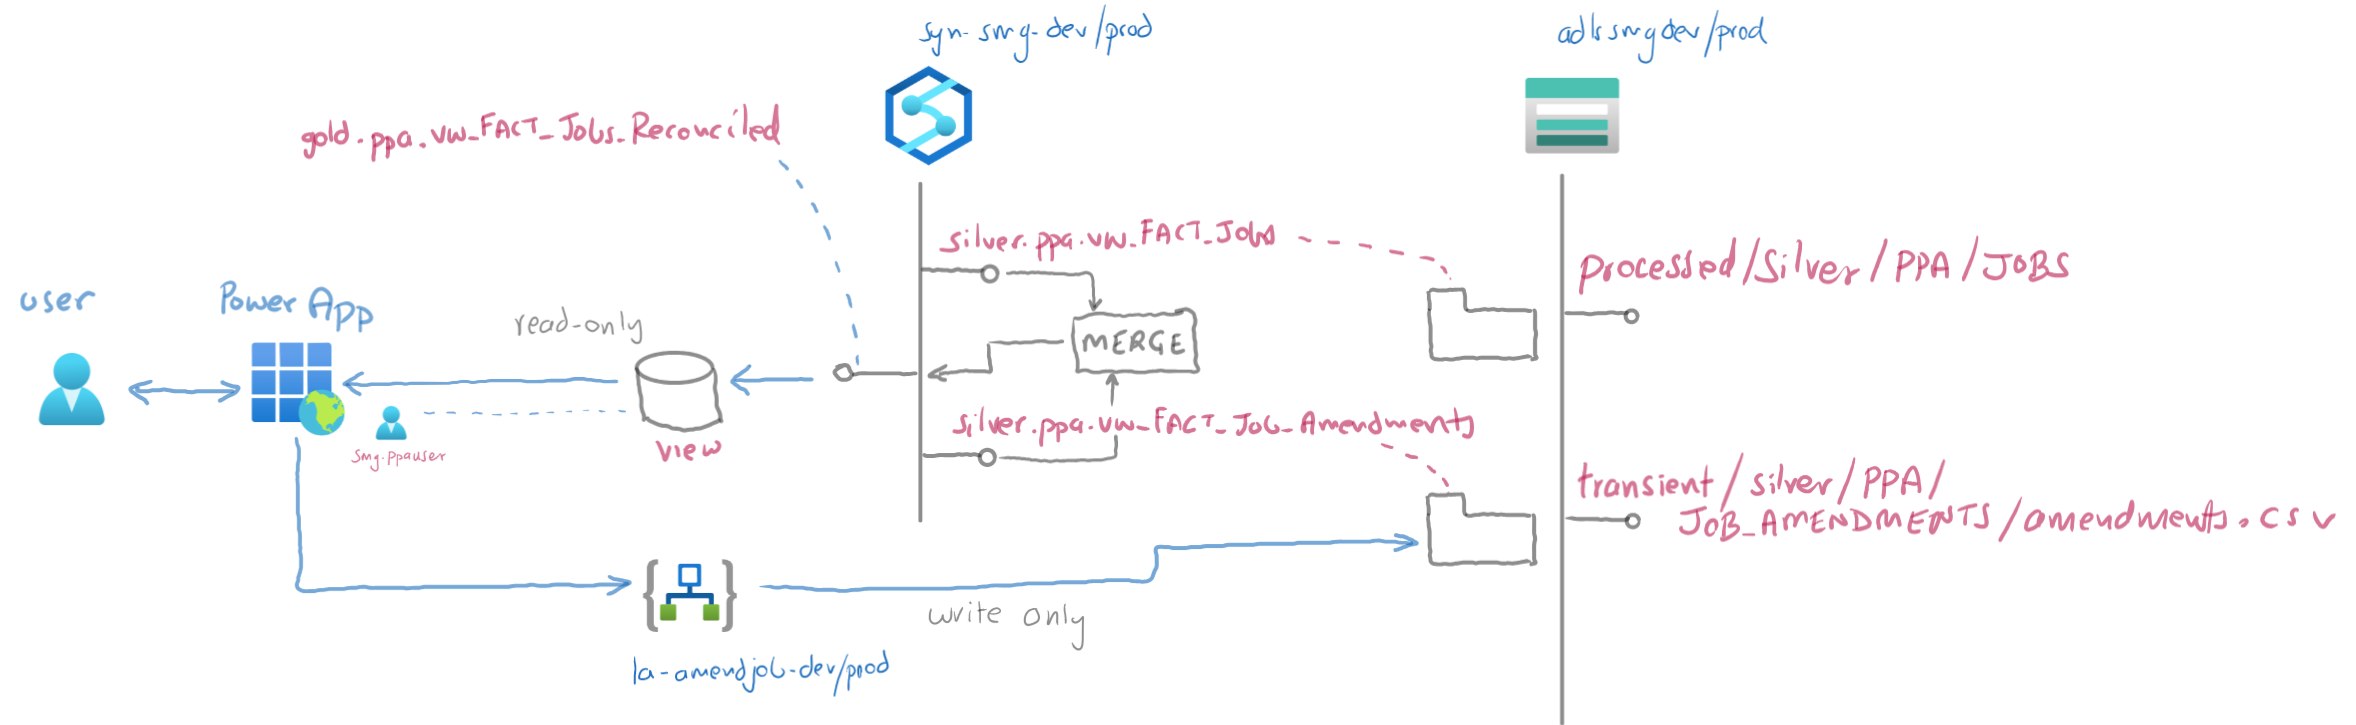 syn-smg-dev/prod
adlssmgdev/prod
gold.ppa.vw_FACT_Jobs_Reconciled
silver.ppa.vw_FACT_Jobs
processed/Silver/PPA/JOBS
user
Power App
read-only
MERGE
silver.ppa.vw_FACT_Job_Amendments
smg.ppauser
VIEW
transient/silver/PPA/
JOB_AMENDMENTS/amendments.csv
write only
la-amendjob-dev/prod